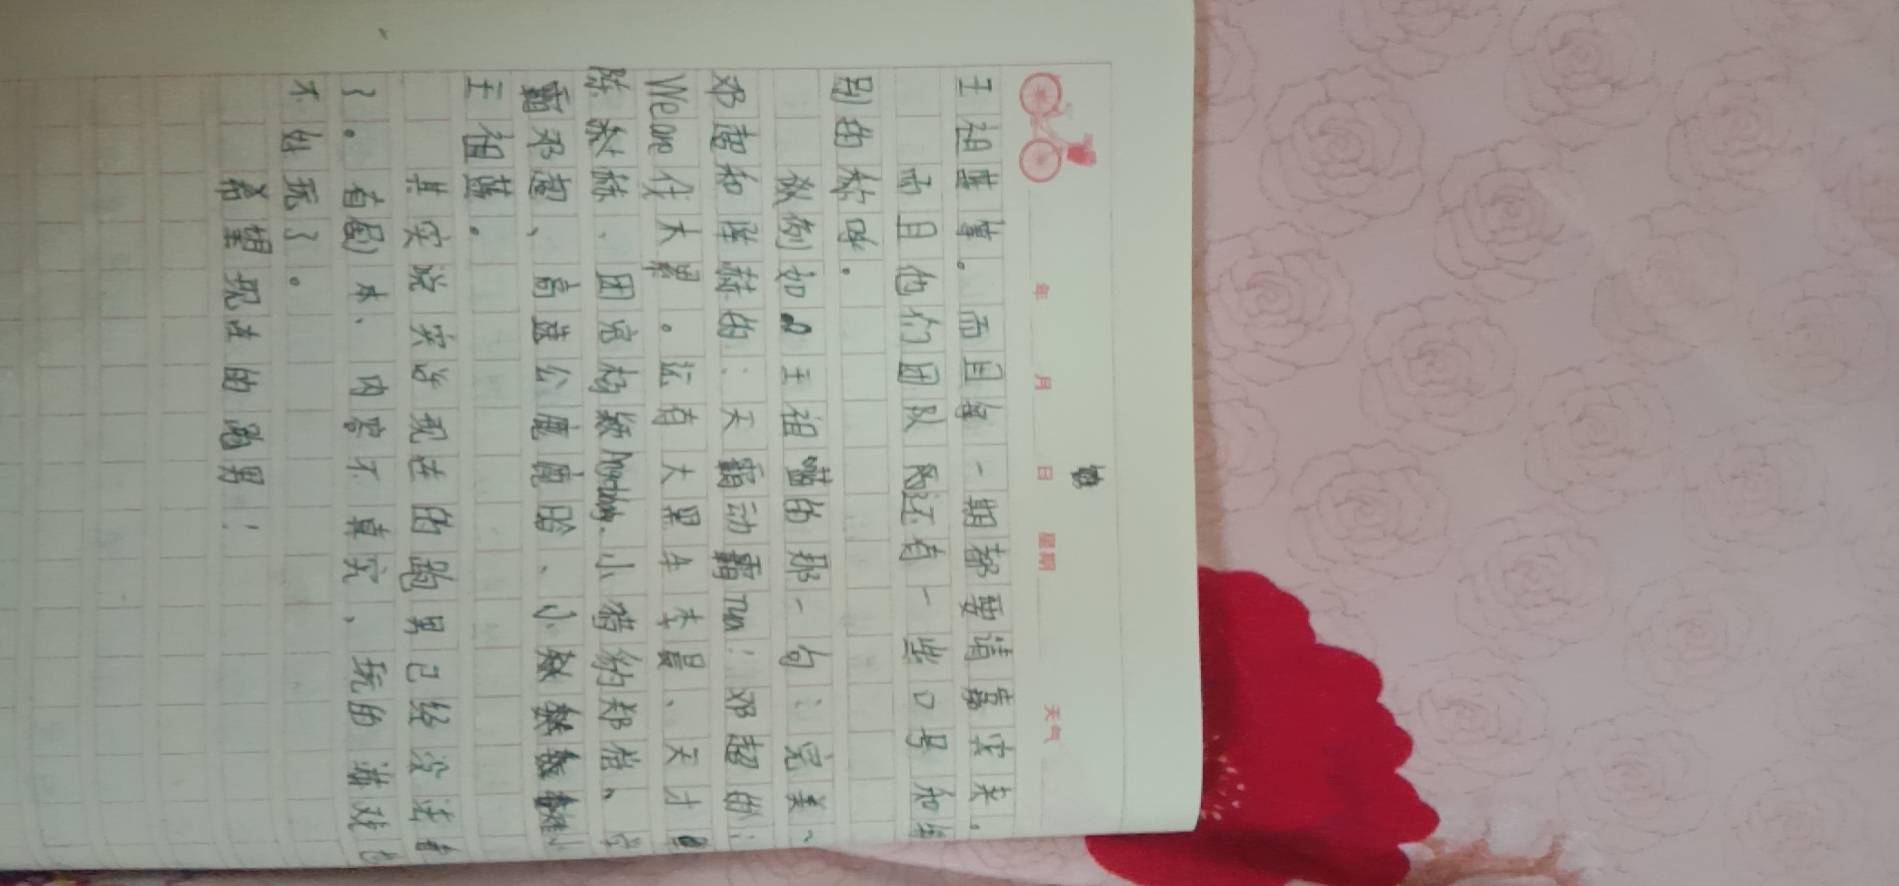 年 月 日 星期 天气
王祖蓝等。而且每一期都要请嘉宾来。
而且他们团队还有一些口号和
别的称呼。
就例如王祖蓝的那一句：完美、
邓超和陈赫的：天霸动霸tua！邓超的：
We are 伐木累。还有大黑牛李晨、天才
陈赫、团宠杨颖Angelababy、小猪猪的郑恺、学
霸邓超、高
王祖蓝。
其实说实话现在的跑男已经没法看
了。看剧本、内容不真实、玩的游戏也
不好玩了。
希望现在的跑男！